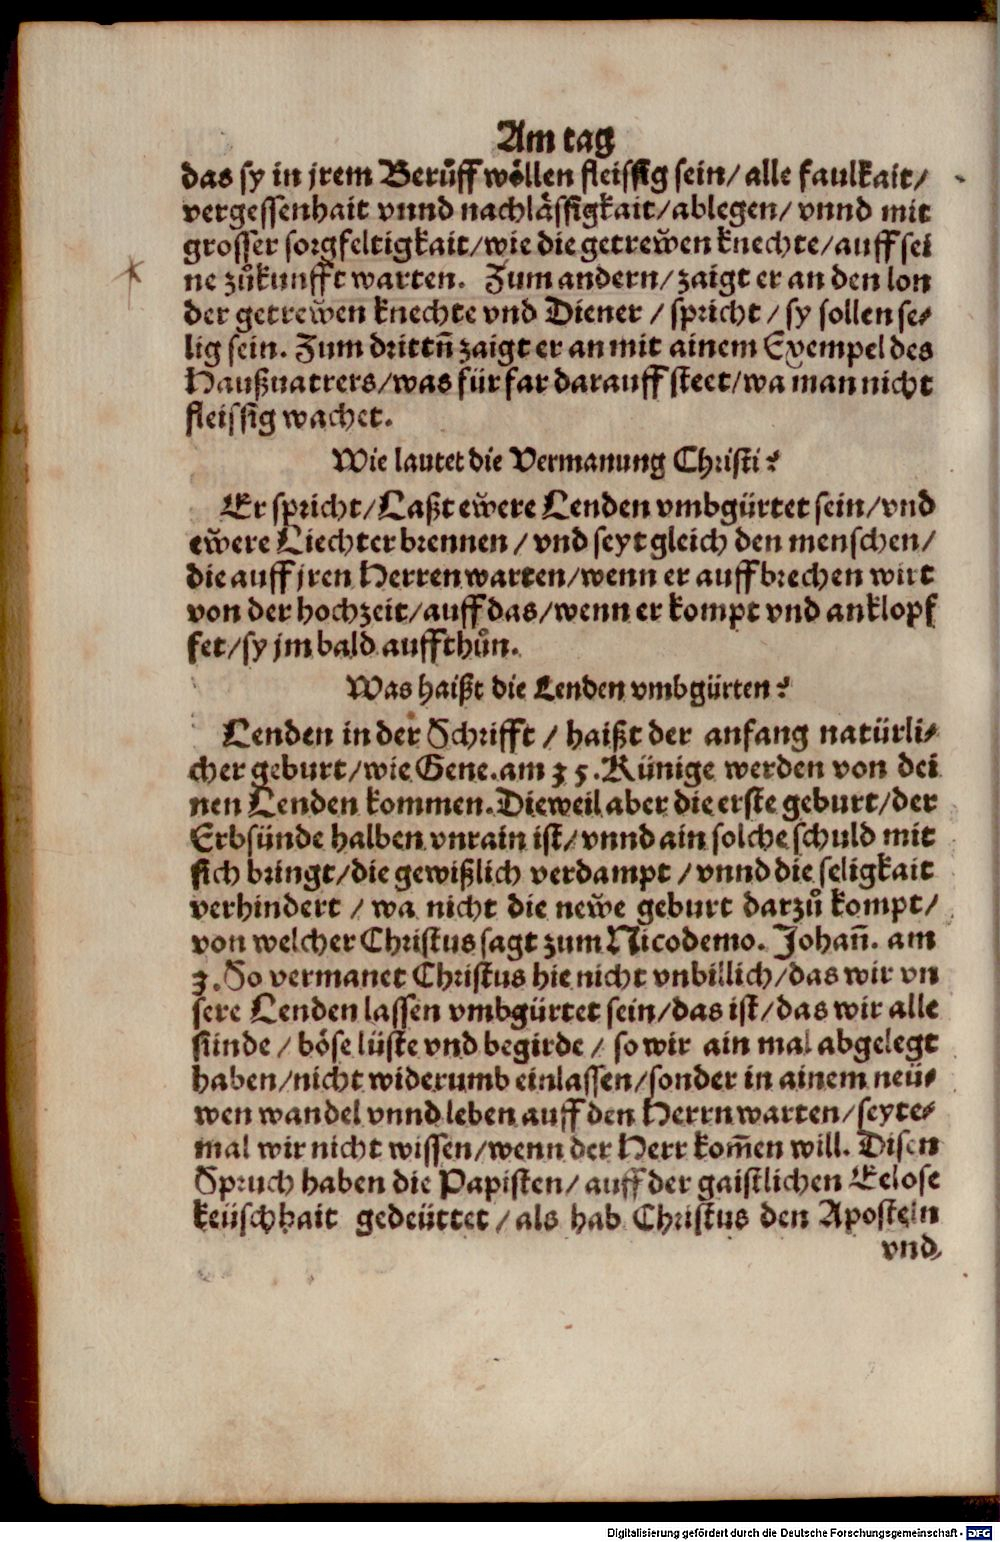 Am tag
das sy in jrem Berůff wöllen fleissig sein/ alle faulkait/
vergessenhait vnnd nachlässigkait/ ablegen/ vnnd mit
grosser sorgfeltigkait/ wie die getrewen knechte/ auff sei
ne zůkunfft warten. Zum andern/ zaigt er an den lon
der getrewen knechte vnd Diener / spricht / sy sollen se-
lig sein. Zum drittñ zaigt er an mit ainem Exempel des
Haußuatrers/ was für far darauff steet/ wa man nicht
fleissig wachet.
Wie lautet die Vermanung Christi?
Er spricht/ Laßt ewere Lenden vmbgürtet sein/ vnd
ewere Liechter brennen / vnd seyt gleich den menschen/
die auff jren Herren warten/ wenn er auffbrechen wirt
von der hochzeit/ auff das/ wenn er kompt vnd anklopf
fet/ sy jm bald auffthůn.
Was haißt die Lenden vmbgürten?
Lenden in der Schrifft / haißt der anfang natürli-
cher geburt/ wie Gene. am 35. Künige werden von dei
nen Lenden kommen. Dieweil aber die erste geburt/ der
Erbsünde halben vnrain ist/ vnnd ain solche schuld mit
sich bringt/ die gewißlich verdampt / vnnd die seligkait
verhindert / wa nicht die newe geburt darzů kompt/
von welcher Christus sagt zum Nicodemo. Johañ. am
3. So vermanet Christus hie nicht vnbillich/ das wir vn
sere Lenden lassen vmbgürtet sein/ das ist/ das wir alle
sünde / böse lüste vnd begirde / so wir ain mal abgelegt
haben/ nicht widerumb einlassen/ sonder in ainem neü-
wen wandel vnnd leben auff den Herrn warten/ seyte-
mal wir nicht wissen/ wenn der Herr kom̃en will. Disen
Spruch haben die Papisten/ auff der gaistlichen Eelose
keüschhait gedeüttet / als hab Christus den Aposteln
vnd
Digitalisierung gefördert durch die Deutsche Forschungsgemeinschaft - DFG